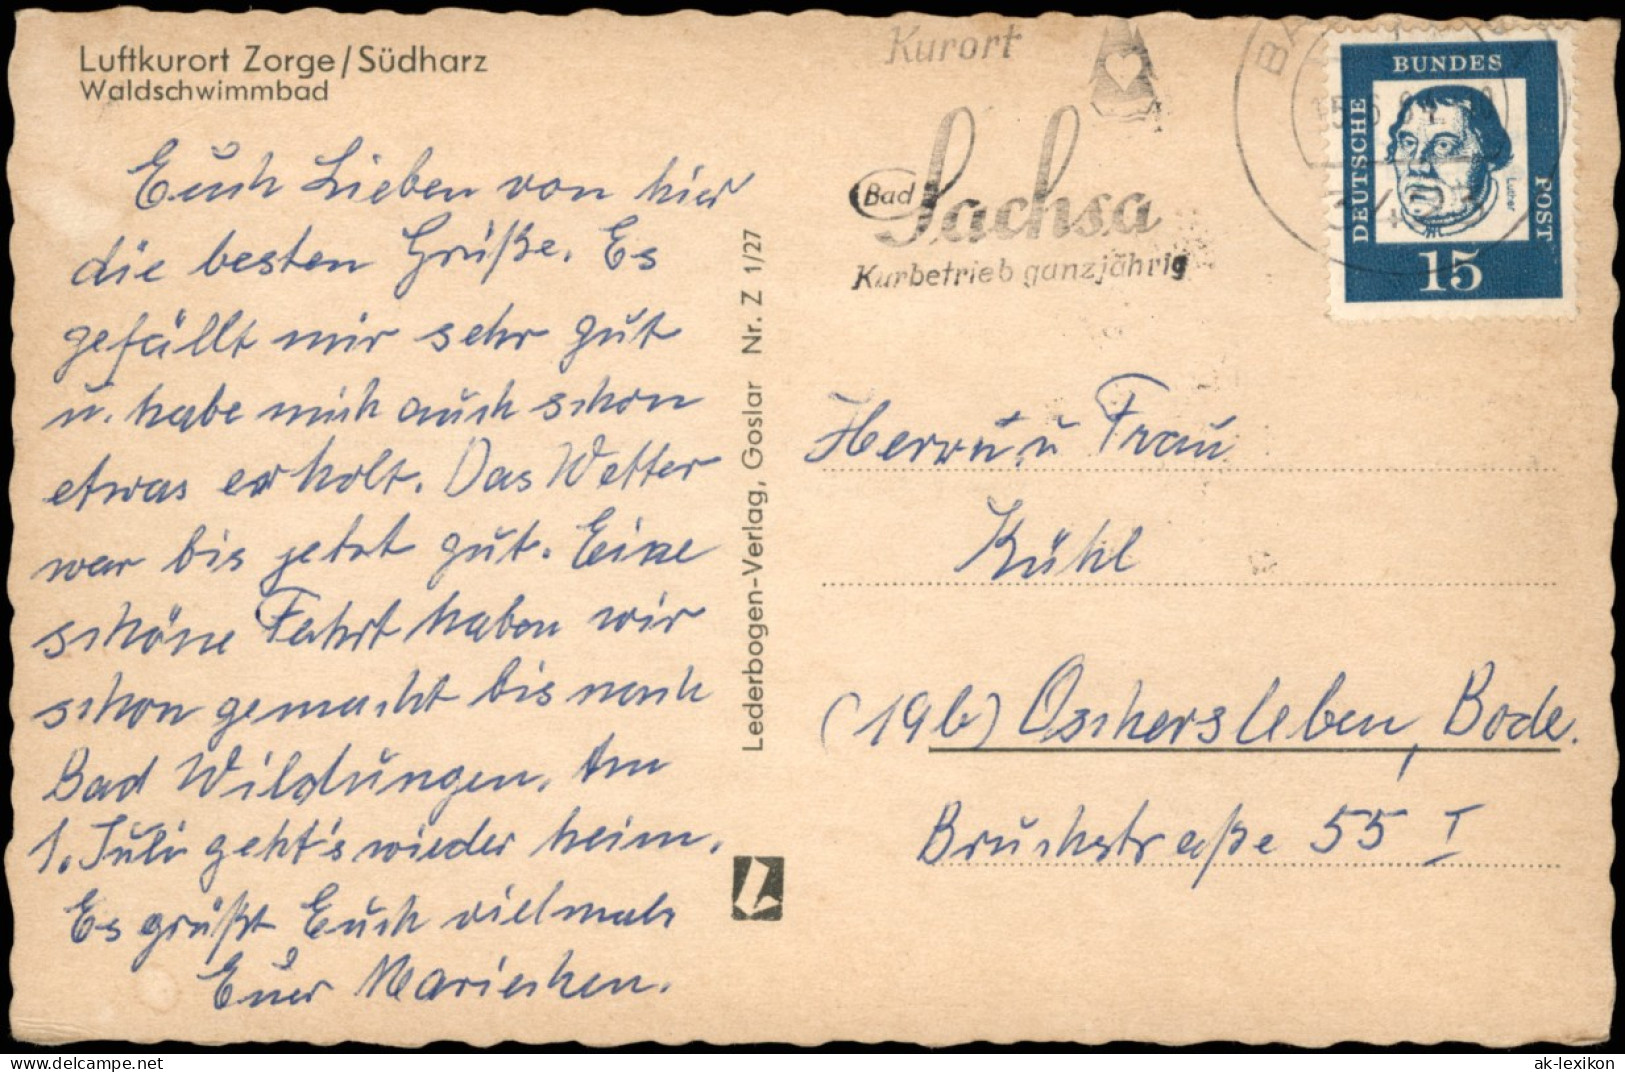 Luftkurort Zorge/Südharz
Waldschwimmbad
Euch Lieben von hier
die besten Grüße. Es
gefällt mir sehr gut
u. habe mich auch schon
etwas erholt. Das Wetter
war bis jetzt gut. Eine
schöne Fahrt haben wir
schon gemacht bis nach
Bad Wildungen. Am
1. Juli geht's wieder heim.
Es grüßt Euch vielmals
Euer Mariechen.
Lederbogen-Verlag, Goslar Nr. Z 1/27
Kurort
Bad Sachsa
Kurbetrieb ganzjährig
DEUTSCHE
BUNDES
POST
Luther
15
Herrn u. Frau
Kühl
(19b) Oschersleben, Bode.
Bruchstraße 55 I
delcampe.net
ak-lexikon